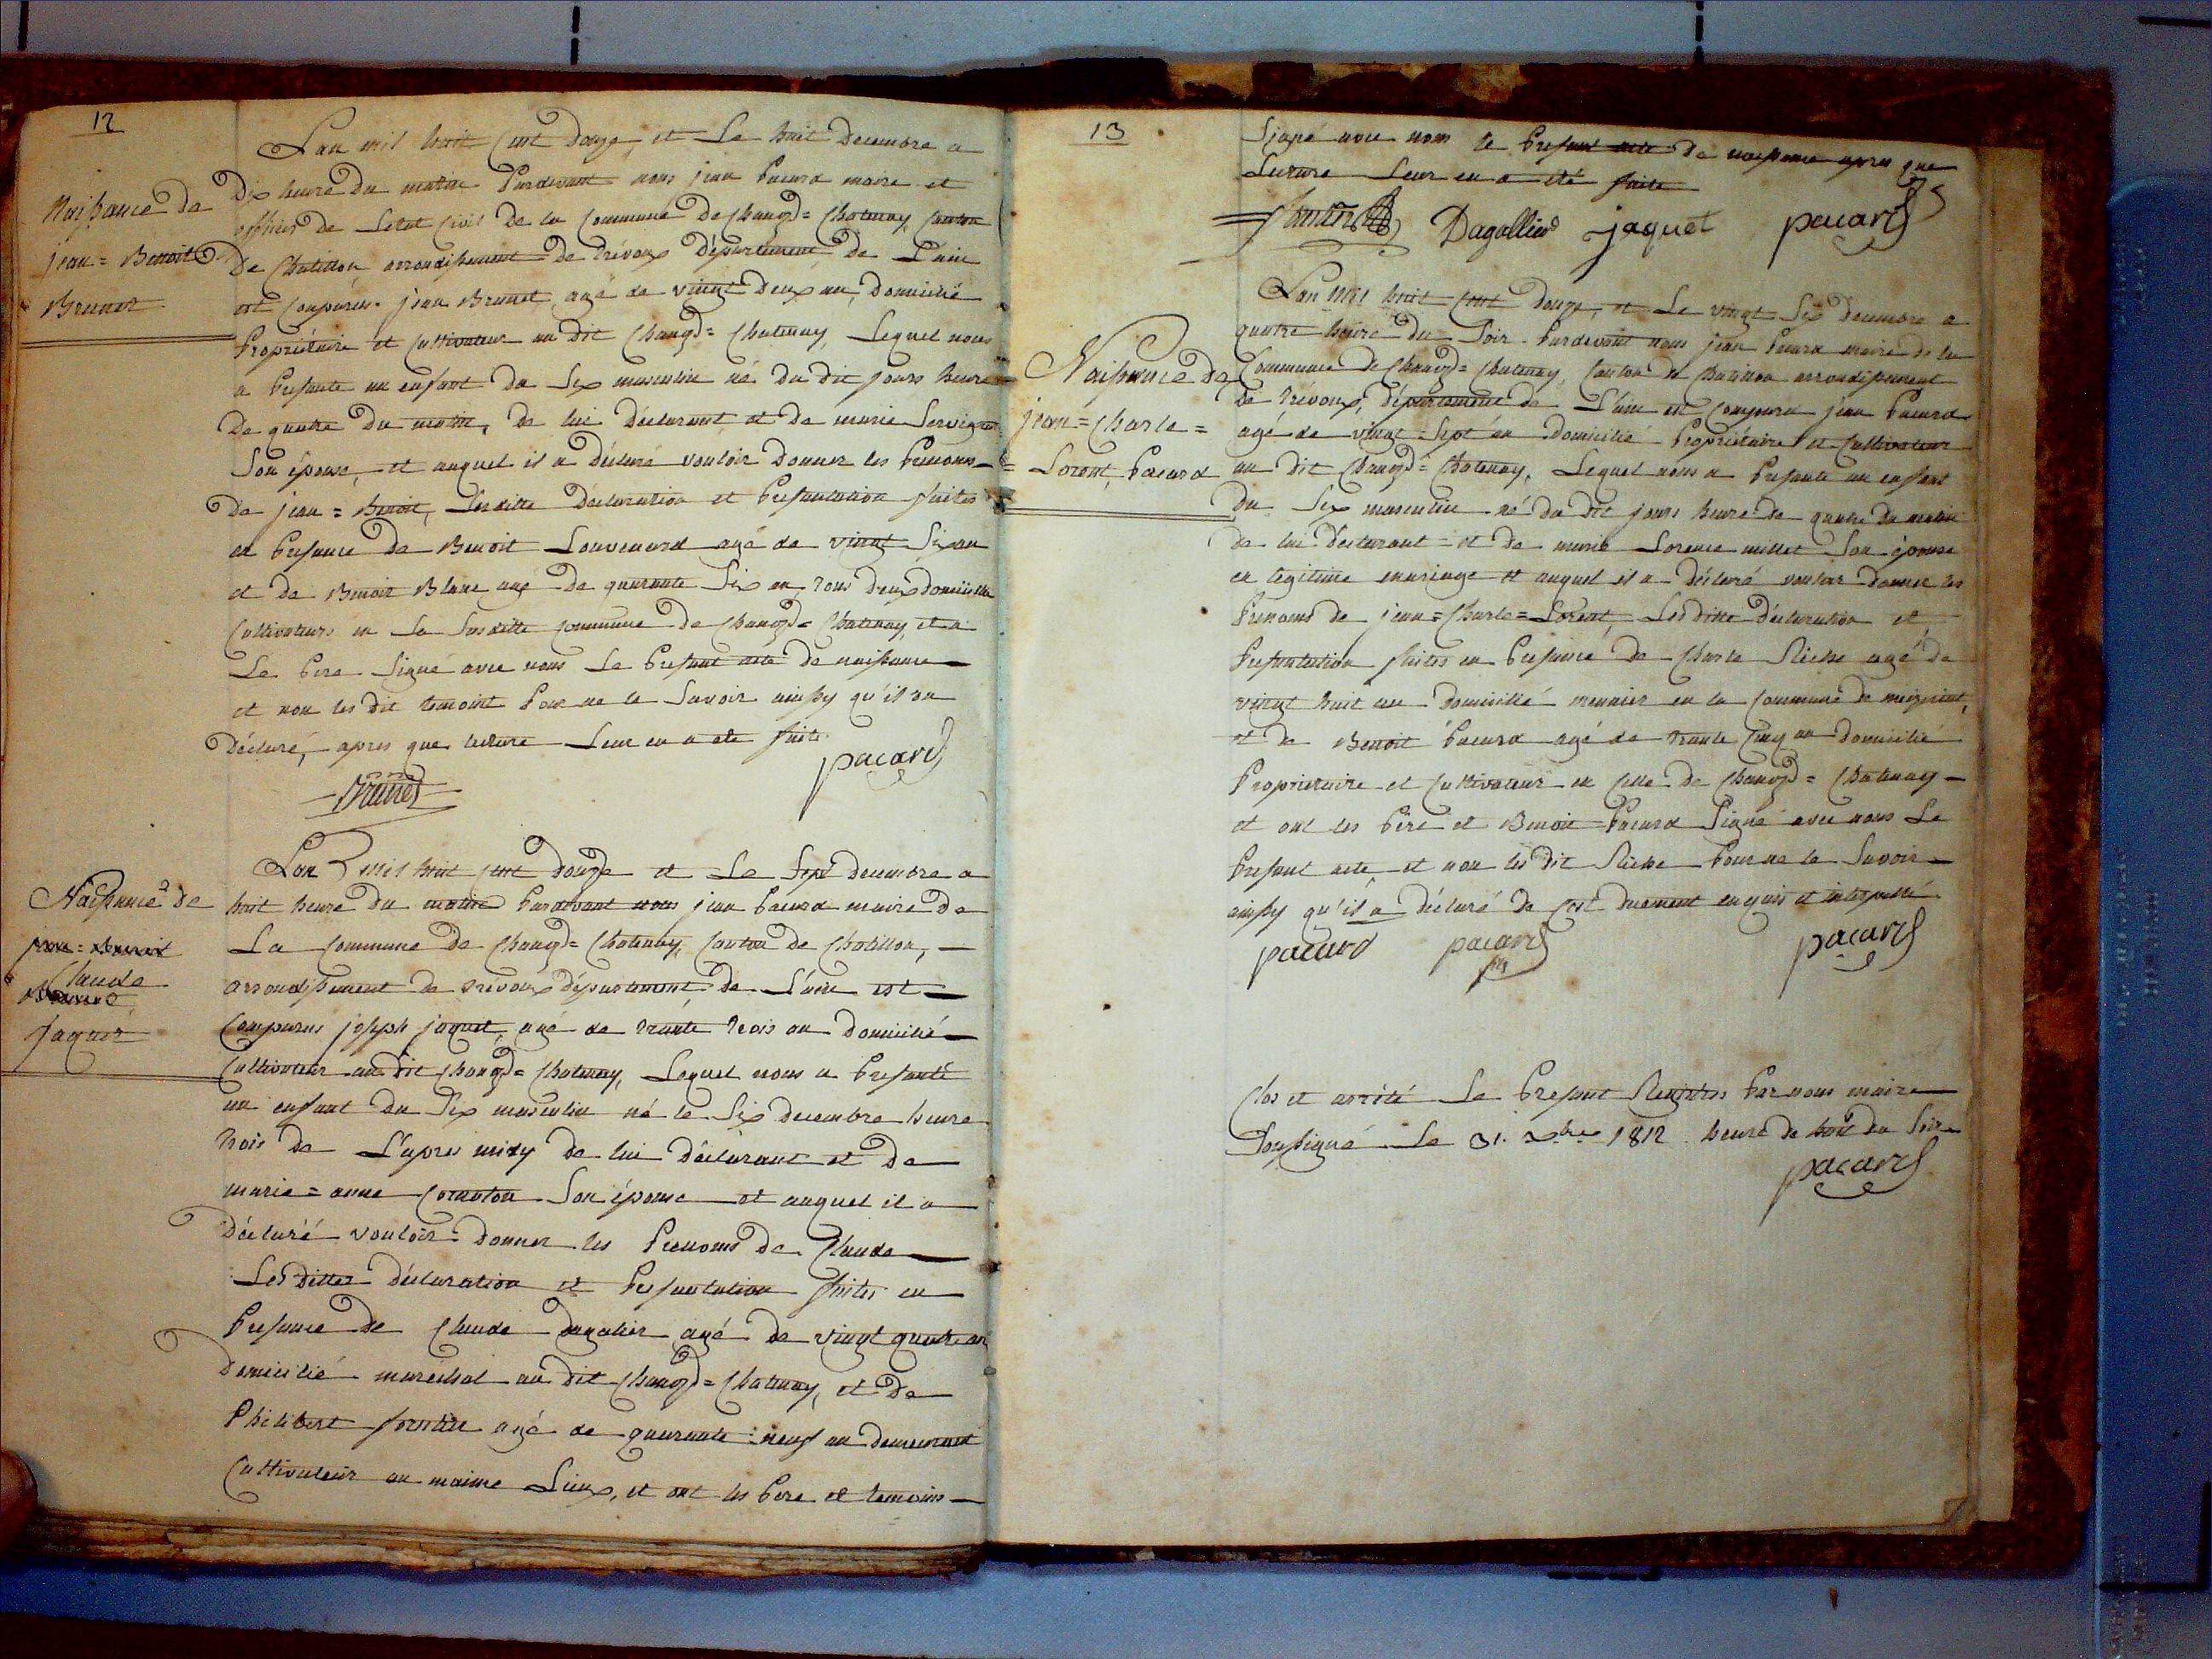 12
Naissance de
jean = Benoit
Brunet
L'an mil huit cent douze, et Le huit decembre a
dix heure du matin Pardevant nous jean Pacard maire et
officier de Letat Civil de la Commune de Chanoz = Chatenay, Canton
De Chatillon arrondissement de Trévoux département de L'ain
est Comparus jean Brunet, agé de vingt deux an, domicilié
Propriétaire et Cultivateur au dit Chanoz = Chatenay, Lequel nous
a Presante un enfant du Sex masculin né du dit jours heure
De quatre du matin, de lui déclarant et de marie Servignat
Son épouse, et auquel il a déclaré vouloir donner les Prenoms
de jean = Benoit, Lesditte déclaration et Presantation faites
en Presance de Benoit Souvenard agé de vingt Six an
et de Benoit Blanc agé de quarante Six an, tous deux domicilié
Cultivateurs en La Susditte Commune de Chanoz = Chatenay, et a
Le Pere Signé avec nous Le Presant acte de naissance
et non les dit temoint Pour ne le Savoir ainssy qu'il on
déclaré, apres que lecture Leur en a été faite
Brunet pacard
Naissance de
jean = Benoit
Claude
Brunet
Jaquet
L'an mil huit cent douze et Le Sept decembre a
huit heure du matin Pardevant nous jean Pacard maire de
La Commune de Chanoz = Chatenay, Canton de Chatillon,
arrondissement de Trévoux département de L'ain est
Comparus joseph jaquet, agé de trante trois an domicilié
Cultivateur au dit Chanoz = Chatenay, Lequel nous a Presanté
un enfant du Sex masculin né le Six decembre heure
trois de L'apres midy de lui déclarant et de
marie = anne Cornaton Son épouse et auquel il a
déclaré vouloir donner les Prenoms de Claude
Les dittes déclaration et Presantation faites en
Presance de Claude Dagalier agé de vingt quatre an
domicilié maréchal au dit Chanoz = Chatenay, et de
Philibert agé de quarante neuf an demeurant
Cultivateur au maime Lieux, et ont les Pere et temoins
13
Signé avec nous le Presant acte de naissance apres que
Lecture Leur en a été faite
Dagallier jaquet pacard
Naissance de
jean = Charle =
Lorent, Pacard
L'an mil huit cent douze, et Le vingt Six decembre a
quatre heure du Soir Pardevant nous jean Pacard maire de la
Commune de Chanoz = Chatenay, Canton de Chatillon arrondissement
de Trévoux, département de L'ain est Comparu jean Pacard
agé de vingt Sept an domicilié Propriétaire et Cultivateur
au dit Chanoz = Chatenay, Lequel nous a Presante un enfant
du Sex masculin né du dit jours heure de quatre du matin
de lui déclarant et de marie Lorence millet Son épouse
en legitime mariage et auquel il a déclaré vouloir donner les
Prenoms de jean = Charle = Lorent, Les ditte déclaration et
Presantation faites en Presance de Charle agé de
vingt huit an domicilié meunier en la Commune de
et de Benoit Pacard agé de trante Cinq an domicilié
Propriétaire et Cultivateur en Celle de Chanoz = Chatenay
et ont les Père et Benoit Pacard Signé avec nous Le
Presant acte, et non les dit Pour ne le Savoir
ainssy qu'il a déclaré de Cest duement enquis et interpellé
pacard pacard pacard
Clos et arrété Le Presant Registres Par nous maire
Soussigné Le 31. Xbre 1812. heure de huit du Soir
pacard